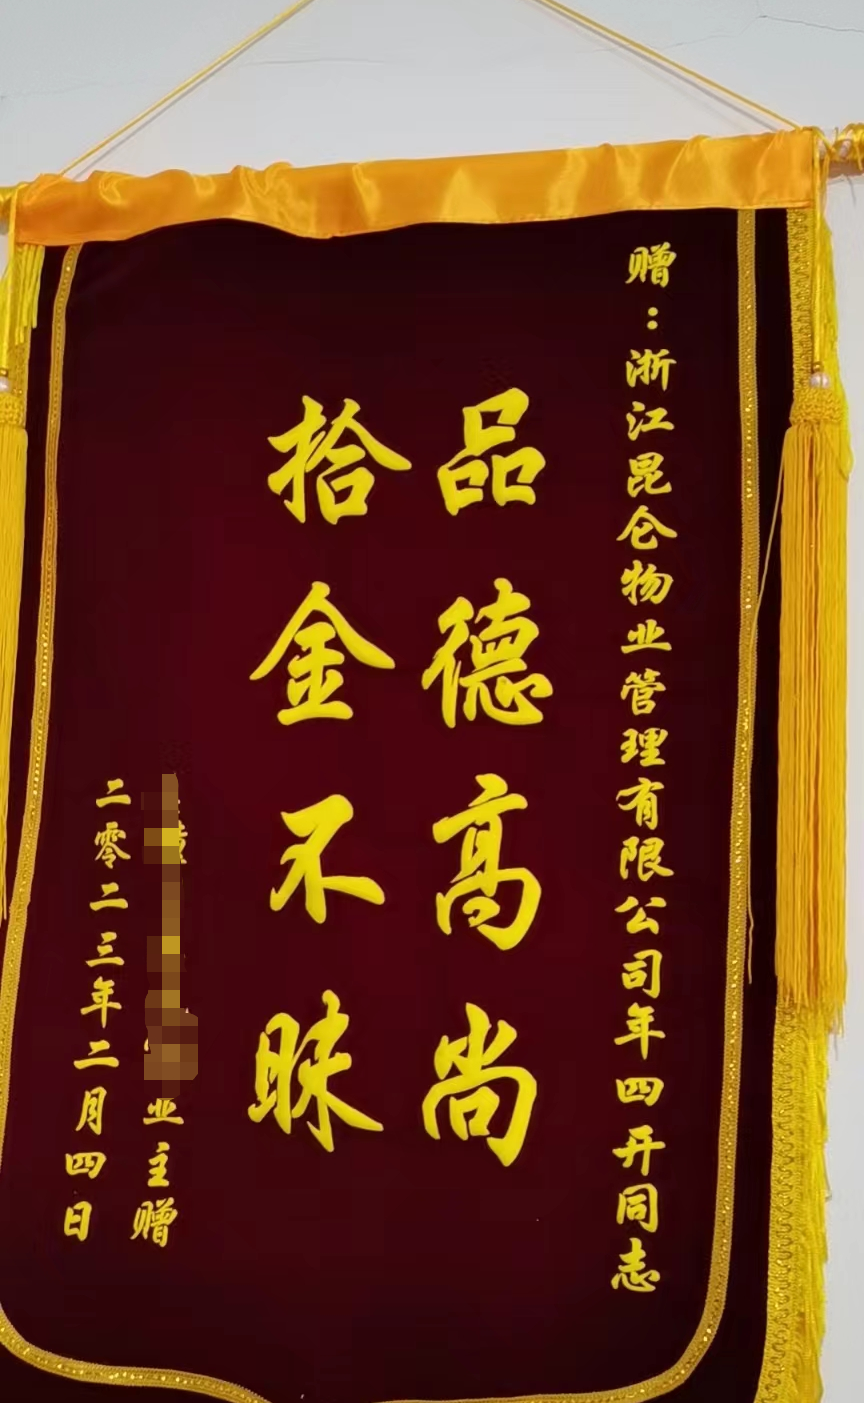 赠：浙江昆仑物业管理有限公司年四开同志
品德高尚
拾金不昧
业主赠
二零二三年二月四日